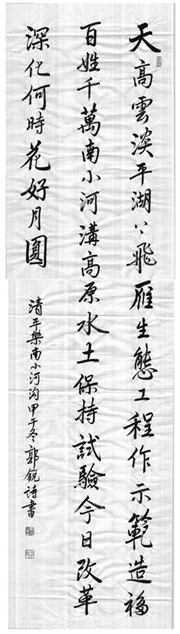 天高雲淡平湖㳠飛雁生態工程作示範造福
百姓千萬南小河溝高原水土保持試驗今日改革
深化何時花好月圓
清平樂南小河沟甲午冬郭锐詩書